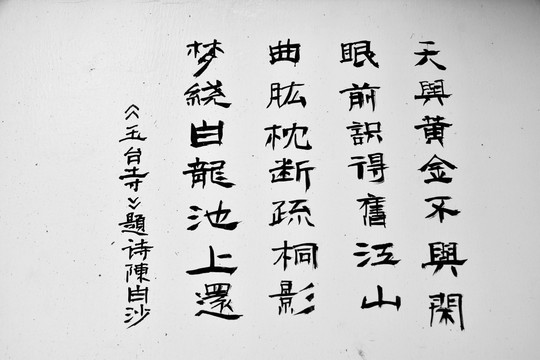 天與黃金不與閑
眼前識得舊江山
曲肱枕断疏桐影
梦繞白龍池上還
《玉台寺》題诗陳白沙